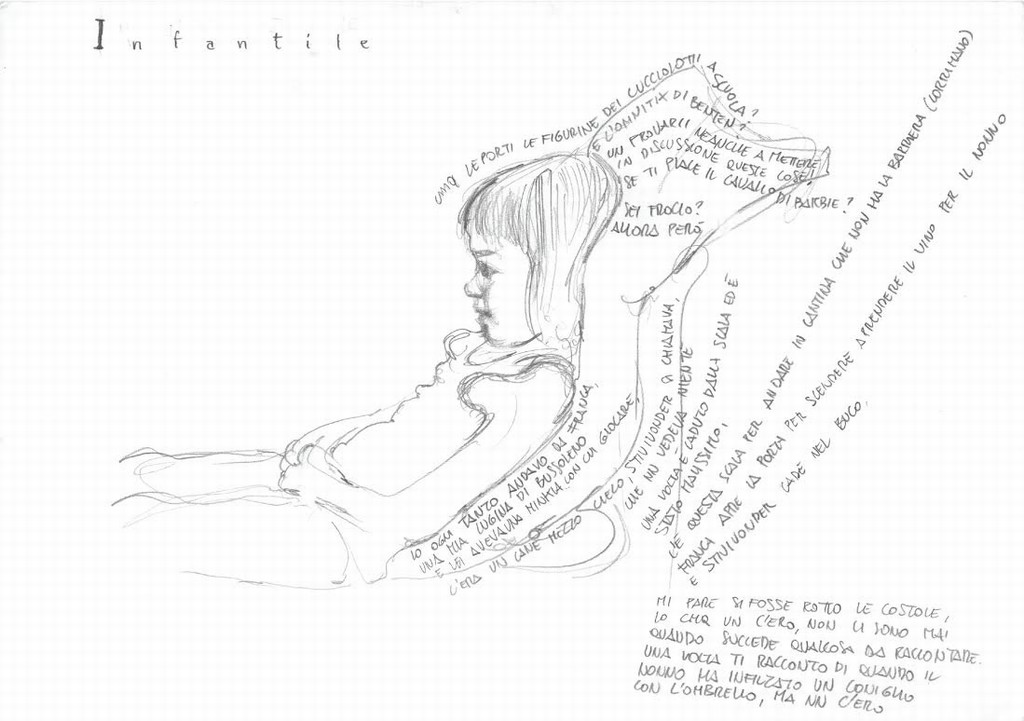 Infantile
CMQ LE PORTI LE FIGURINE DEI CUCCIOLOTTI A SCUOLA?
E L'OMNITIX DI BENTEN?
UN PROVARTI NEANCHE A METTERE
IN DISCUSSIONE QUESTE COSE!
SE TI PIACE IL CAVALLO DI BARBIE?
SEI FROCIO?
ALLORA PERÒ
IO OGNI TANTO ANDAVO DA FRANCA,
UNA MIA CUGINA DI BUSSOLENO
E LEI AVEVA UNA MINATA CON CUI GIOCARE.
C'ERA UN CANE MEZZO CIECO, STIVIVONDER SI CHIAMAVA,
CHE NN VEDEVA NIENTE
UNA VOLTA È CADUTO DALLA SCALA ED È
STATO MALISSIMO,
C'È QUESTA SCALA PER ANDARE IN CANTINA CHE NON HA LA BARRIERA (CORRIMANO)
FRANCA APRE LA PORTA PER SCENDERE A PRENDERE IL VINO PER IL NONNO
E STIVIVONDER CADE NEL BUCO.
MI PARE SI FOSSE ROTTO LE COSTOLE,
IO CMQ UN C'ERO, NON CI SONO MAI
QUANDO SUCCEDE QUALCOSA DA RACCONTARE.
UNA VOLTA TI RACCONTO DI QUANDO IL
NONNO HA INFILZATO UN CONIGLIO
CON L'OMBRELLO, MA NN C'ERO